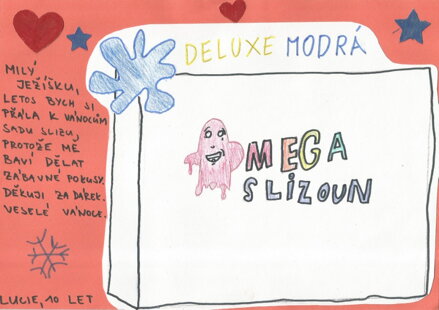 DELUXE MODRÁ
MILÝ
JEŽÍŠKU,
LETOS BYCH SI
PŘÁLA K VÁNOCŮM
SADU SLIZU,
PROTOŽE MĚ
BAVÍ DĚLAT
ZÁBAVNÉ POKUSY.
DĚKUJI ZA DÁREK.
VESELÉ VÁNOCE.
MEGA
SLIZOUN
LUCIE, 10 LET